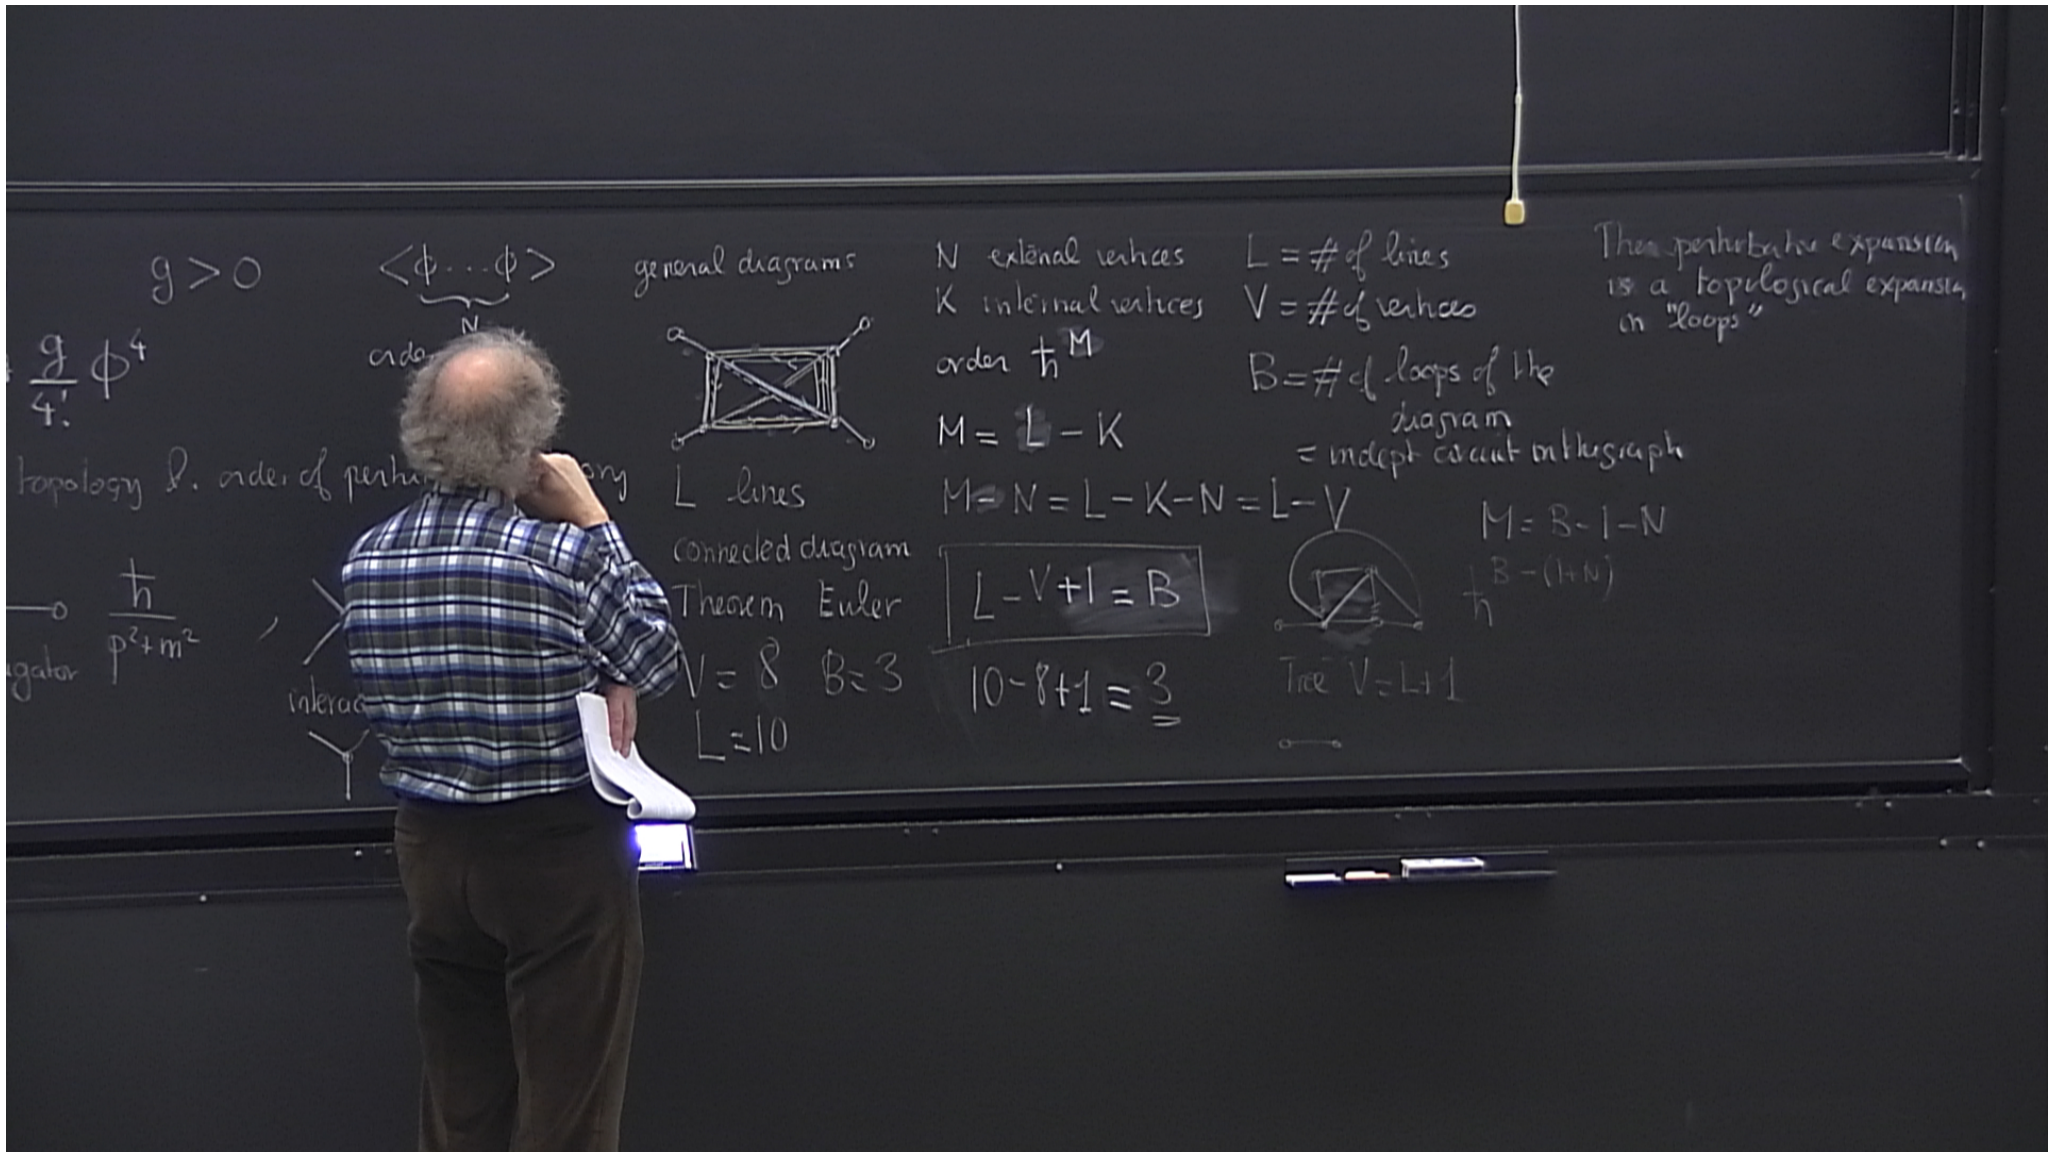 g > 0
g/4! ϕ⁴
topology &. order of pertu ory
ħ/p²+m² ,
gator
interac
<ϕ...ϕ>
N
orde
general diagrams
L lines
connected diagram
Theorem Euler
V = 8 B=3
L=10
N external vertices
K internal vertices
order ħ^M
M = L - K
M - N = L - K - N = L - V
L - V + 1 = B
10 - 8 + 1 = 3
L = # of lines
V = # of vertices
B = # of loops of the
diagram
= indept circuit in the graph
M = B - 1 - N
ħ^B-(1+N)
Tree V = L + 1
The perturbative expansion
is a topological expansion
in "loops"